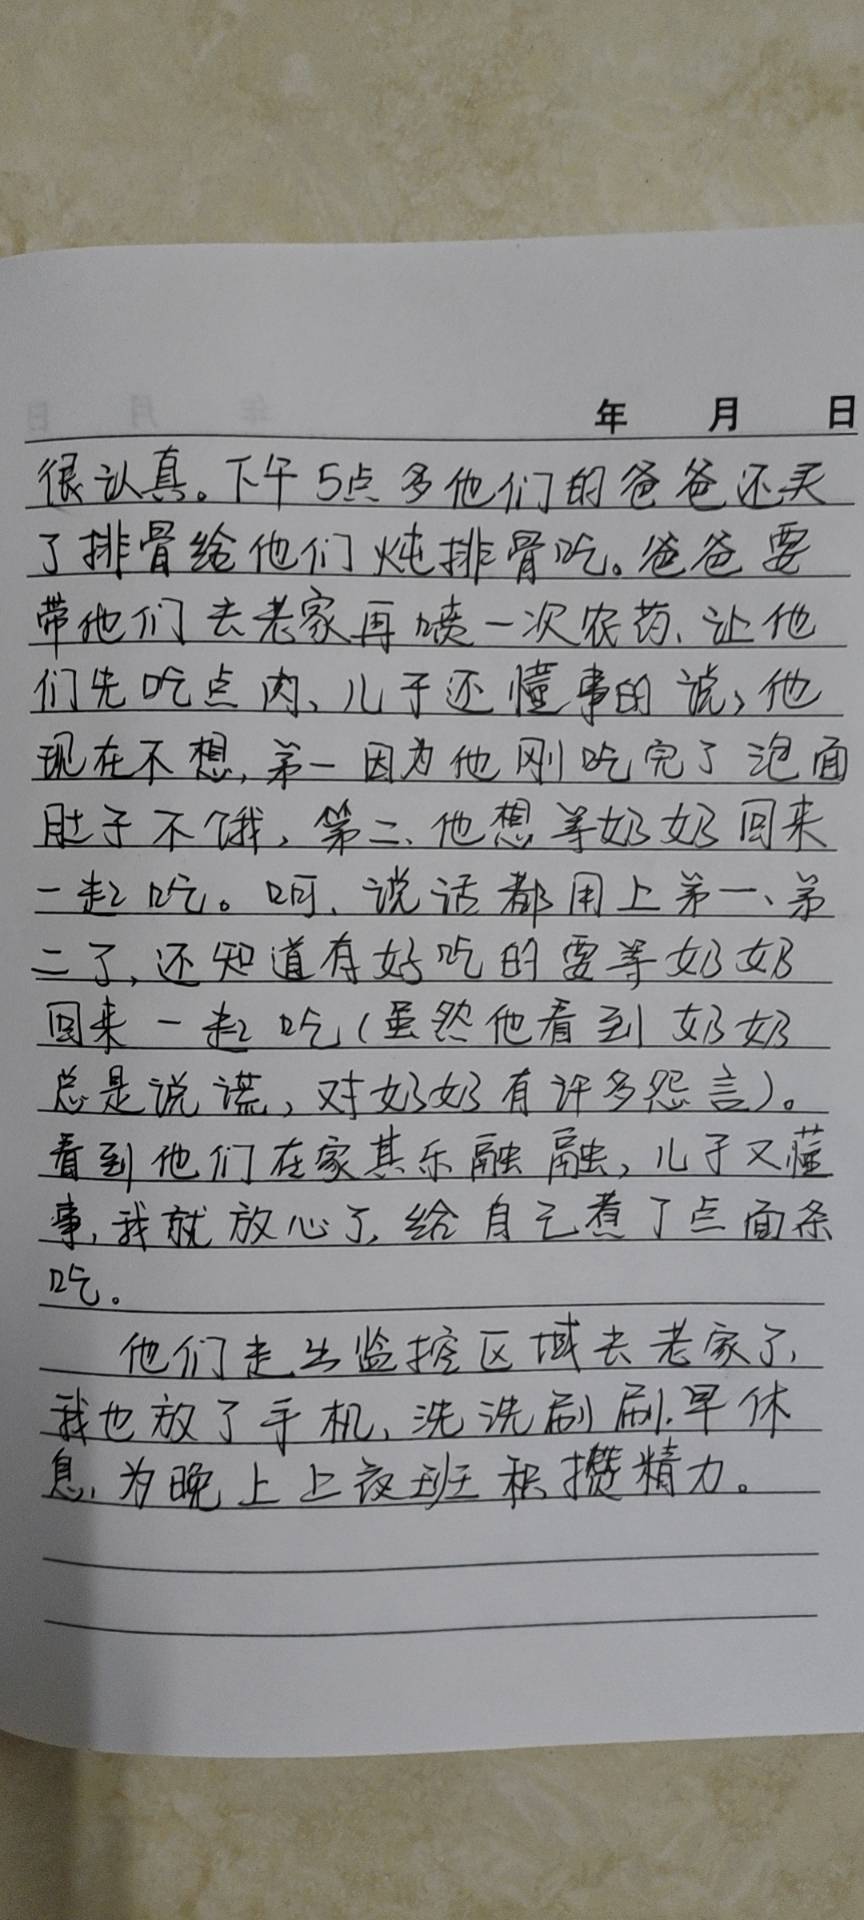 年 月 日
很认真。下午5点多他们的爸爸还买
了排骨给他们炖排骨吃。爸爸要
带他们去老家再喷一次农药、让他
们先吃点肉、儿子还懂事的说，他
现在不想，第一因为他刚吃完了泡面
肚子不饿，第二、他想等奶奶回来
一起吃。呵、说话都用上第一、第
二了，还知道有好吃的要等奶奶
回来一起吃（虽然他看到奶奶
总是说谎，对奶奶有许多怨言）。
看到他们在家其乐融融，儿子又懂
事，我就放心了，给自己煮了点面条
吃。
他们走出监控区域去老家了，
我也放了手机，洗洗刷刷.早休
息，为晚上上夜班积攒精力。